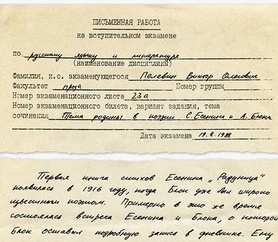 ПИСЬМЕННАЯ РАБОТА
на вступительном экзамене
по русскому языку и литературе
(наименование дисциплины)
Фамилия, и.о. экзаменующегося Пелевин Виктор Олегович
Факультет проза Номер группы
Номер экзаменационного листа 22а
Номер экзаменационного билета, вариант задания, тема
сочинения Тема родины в поэзии С. Есенина и А. Блока
Дата экзамена
Первая книга стихов Есенина „Радуница"
появилась в 1916 году, когда Блок уже был широко
известным поэтом. Примерно в это же время
состоялась встреча Есенина и Блока, о которой
Блок оставил подробную запись в дневнике. Ему